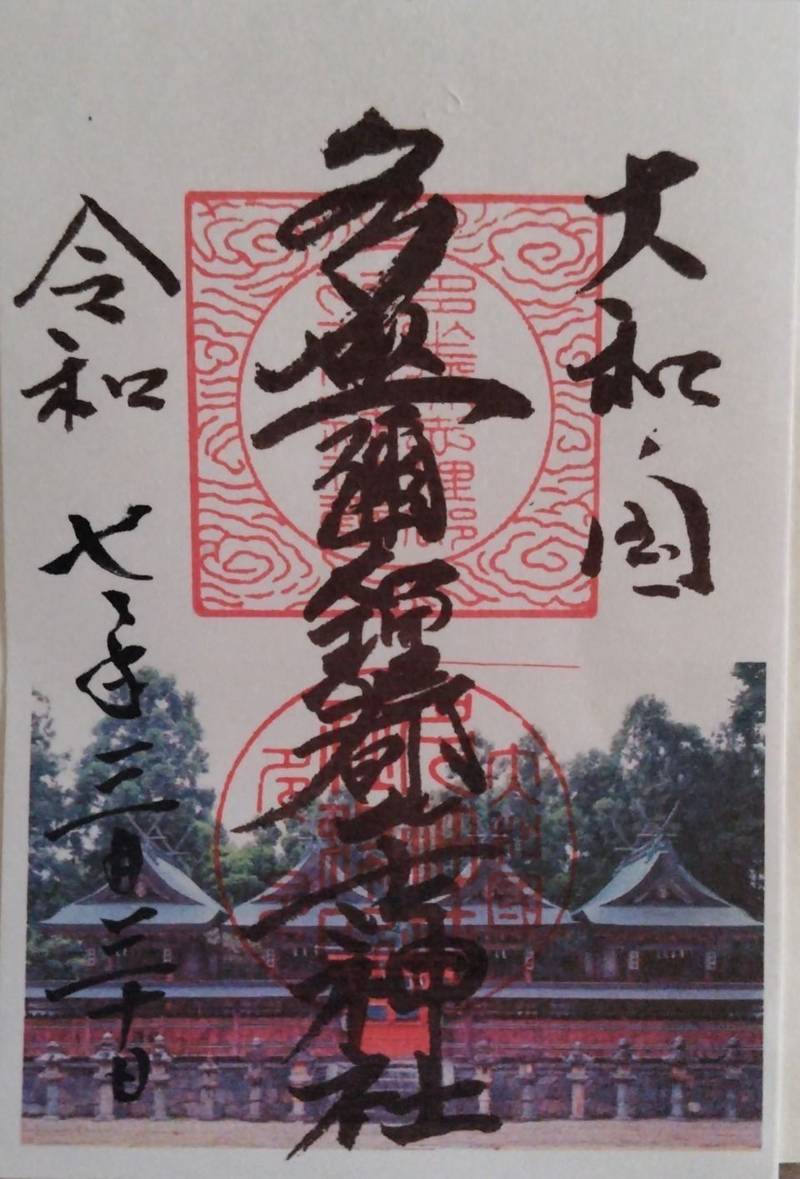 大和国
多坐彌志理都比古神社
令和七年三月三十日